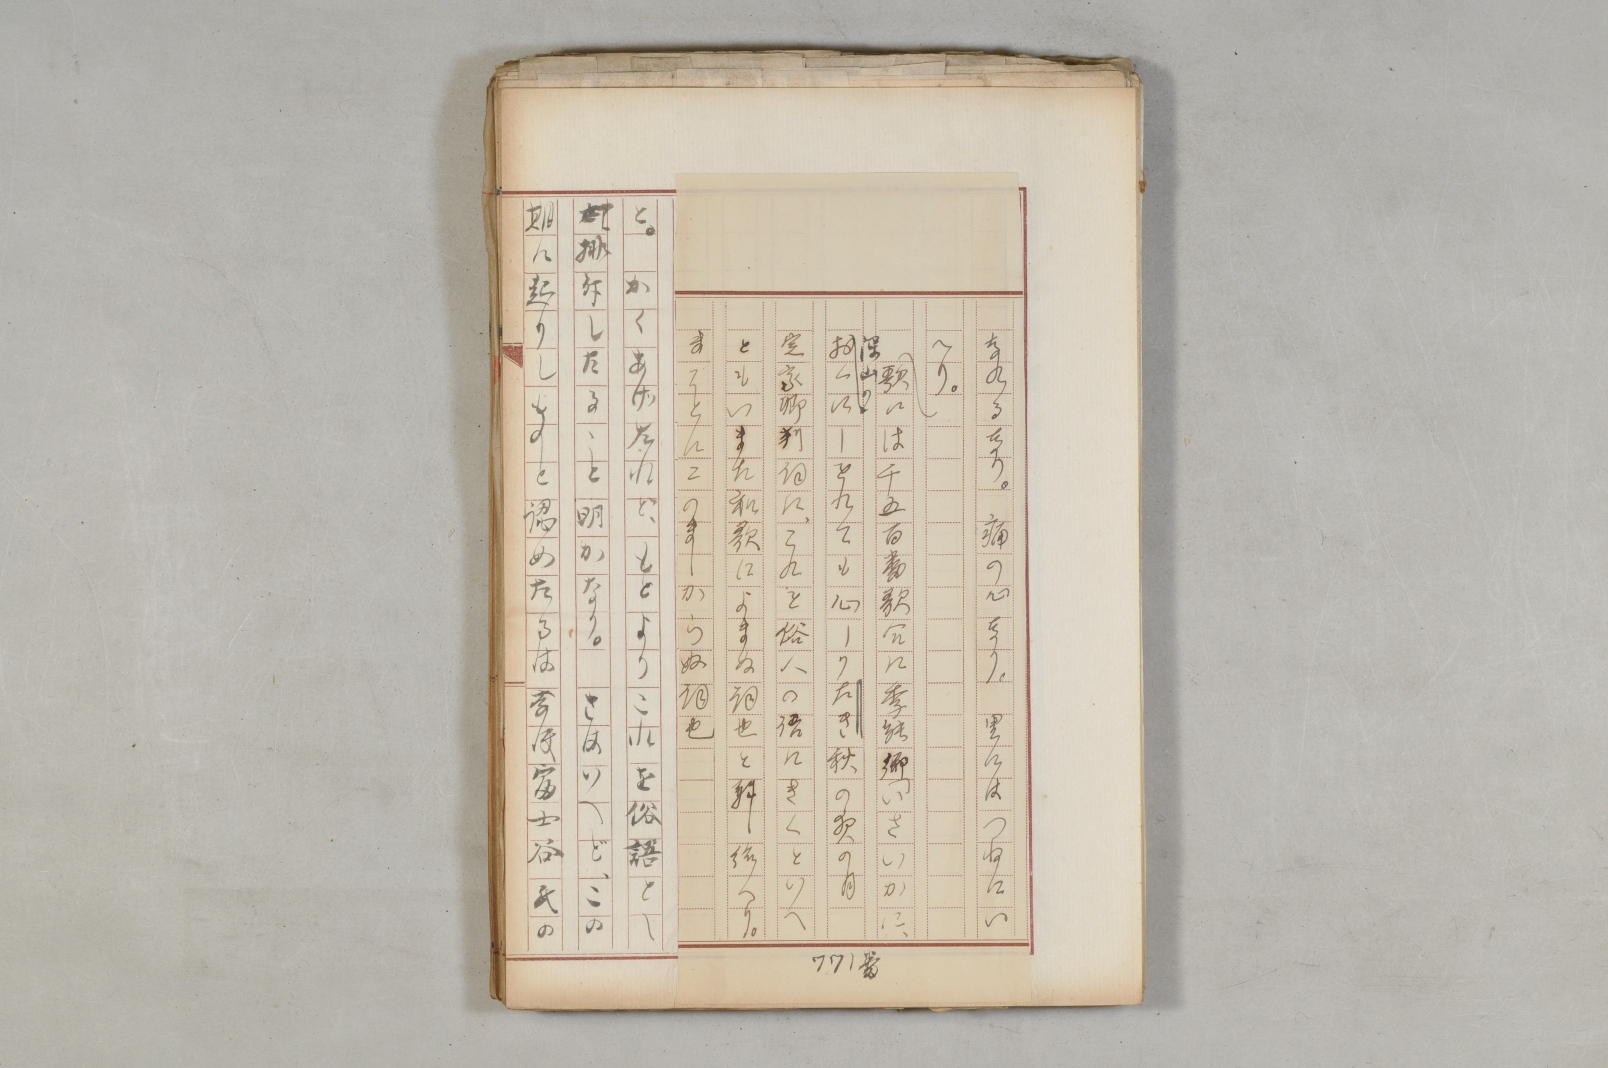 なれるなり。痛の心なり。里にはつねにい
へり。
歌には千五百番歌合に季能卿いさいかに、
深山の
おくにしをれても心しりたき秋の夜の月
定家卿判詞に、これを俗人の語にきくといへ
ともいまた和歌によまぬ詞也と難し給へり。
まことにこのましからぬ詞也
771番
と。かくあげたれど、もとよりこれを俗語とし
排斥したること明かなり。さはいへど、この
期に起りしものと認めたるは
富士谷氏の